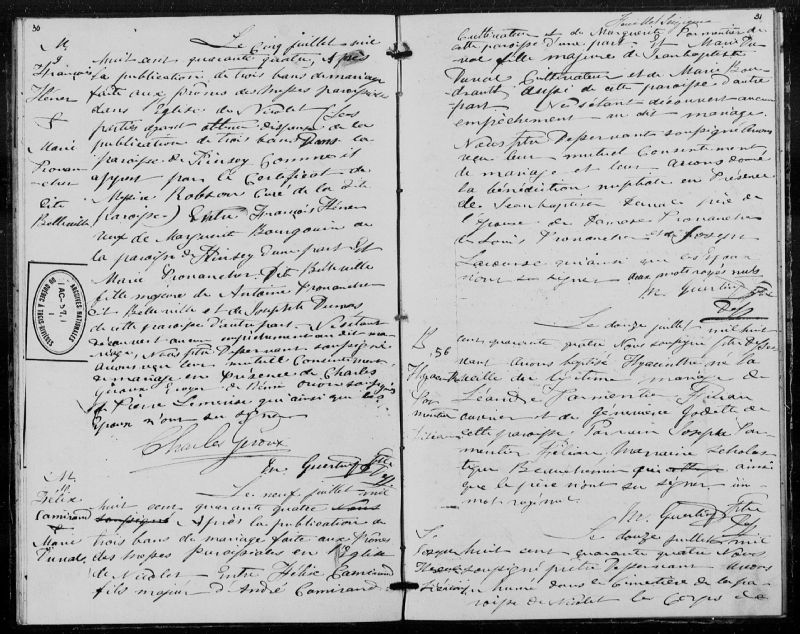 30
M
9
François
Héner
&
Marie
Pronan
cher
dit
Bellville
Le cinq juillet mil
huit cent quarante quatre, après
la publication de trois bans de mariage
faite aux prônes des messes paroissiales
dans l'Eglise de Nicolet (les
parties ayant obtenu dispense de la
publication de trois bans dans la
paroisse de Kinsey comme il
appert par le certificat de
Messire Robson curé de la dite
Paroisse) Entre François Héner
veuf de Marguerite Bourgouin de
la paroisse de Kinsey d'une part et
Marie Pronancher dit Bellville
fille majeure de Antoine Pronancher
dit Bellville et de Josephte Dumas
de cette paroisse d'autre part. N'étant
découvert aucun empêchement au dit ma
riage, Nous Ptre Desservant soussigné
avons reçu leur mutuel consentement
de mariage en présence de Charles
Géroux
et Pierre Lemerise qui ainsi que les
Epoux n'ont su signer
Charles Geroux
M. Guertin Ptre
Des
M
Félix
Camirand
&
Marie
Le neuf juillet mil
huit cent quarante quatre
soussigné Après la publication de
trois bans de mariage faite aux Prônes
des messes paroissiales en l'Eglise
de Nicolet Entre Félix Camirand
fils majeur d'André Camirand
ARCHIVES NATIONALES
DU QUÉBEC À TROIS-RIVIÈRES
31
Cultivateur et de Marguerite Parmentier de
cette paroisse d'une part et Marie
fille majeure de Jean baptiste
Cultivateur et de Marie
aussi de cette paroisse d'autre
part Ne s'étant découvert aucun
empêchement au dit mariage
Nous ptre Desservant soussigné avons
reçu leur mutuel consentement
de mariage et leur avons donné
la bénédiction nuptiale en Présence
de Jean baptiste père de
l'épouse de Pronancher
de Louis Pronancher et de Joseph
qui ainsi que les époux
n'ont su signer deux mots rayés nuls
M. Guertin Ptre
Des
B. 56
Hyacinthe
Par
mentier
Félian
Le douze juillet mil huit
cent quarante quatre Nous soussigné ptre desser
vant avons baptisé Hyacinthe né la
veille du légitime mariage de
Léandre Parmentier Félian
ouvrier et de Généviève Godette de
cette paroisse Parrain Joseph Par
mentier Félian, Marraine Scholas
tique Beauchemin qui ainsi
que le père n'ont su signer un
mot rayé nul
M. Guertin Ptre
Des
S.
Joseph
Le douze juillet mil
huit cent quarante quatre Nous
soussigné prêtre Desservant avons
inhumé dans le cimetière de la pa
roisse de Nicolet le Corps de